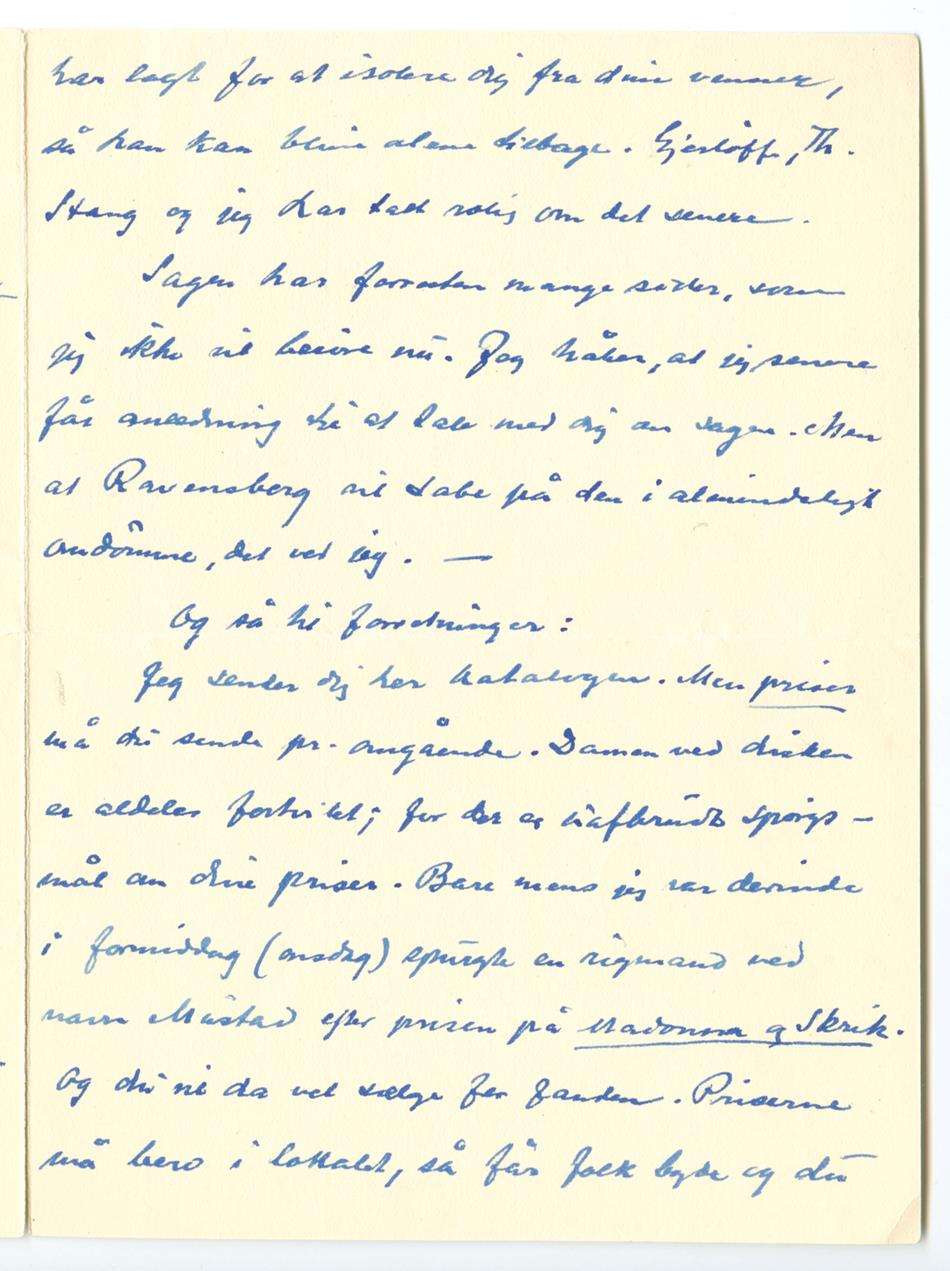 har lagt for at isolere dig fra dine venner,
så han kan blive alene tilbage. Gjerløff, Th.
Stang og jeg har talt rolig om det senere.
Sagen har forresten mange sider, som
jeg ikke vil berøre nu. Jeg håber, at jeg senere
får anledning til at tale med dig om sagen. Men
at Ravensberg vil tabe på den i almindeligt
omdömme, det ved jeg. —
Og så til forretninger:
Jeg sender dig her katalogen. Men priser
må du sende pr. omgående. Damen ved disken
er aldeles fortvilet; for der er uafbrudt spörgs-
mål om dine priser. Bare mens jeg var derinde
i formiddag (onsdag) spurgte en rigmand ved
navn Mustad efter prisen på Madonna og Skrik.
Og du vil da vel sælge for fanden. Priserne
må bero i lokalet, så får folk byde og du